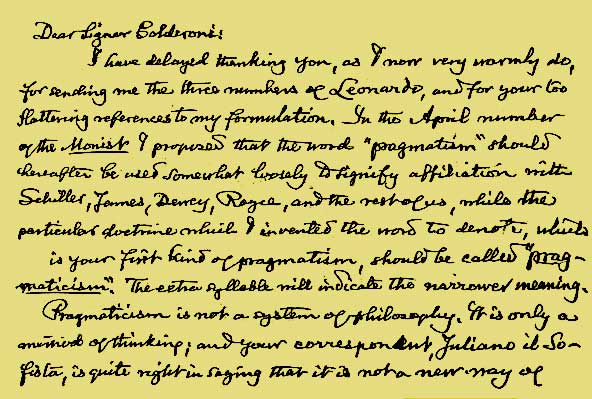 Dear Signor Calderoni:
I have delayed thanking you, as I now very warmly do,
for sending me the three numbers of Leonardo, and for your too
flattering references to my formulation. In the April number
of the Monist I proposed that the word "pragmatism" should
hereafter be used somewhat loosely to signify affiliation with
Schiller, James, Dewey, Royce, and the rest of us, while the
particular doctrine which I invented the word to denote, which
is your first kind of pragmatism, should be called "prag-
maticism." The extra syllable will indicate the narrower meaning.
Pragmaticism is not a system of philosophy. It is only a
method of thinking; and your correspondent, Juliano il So-
fista, is quite right in saying that it is not a new way of